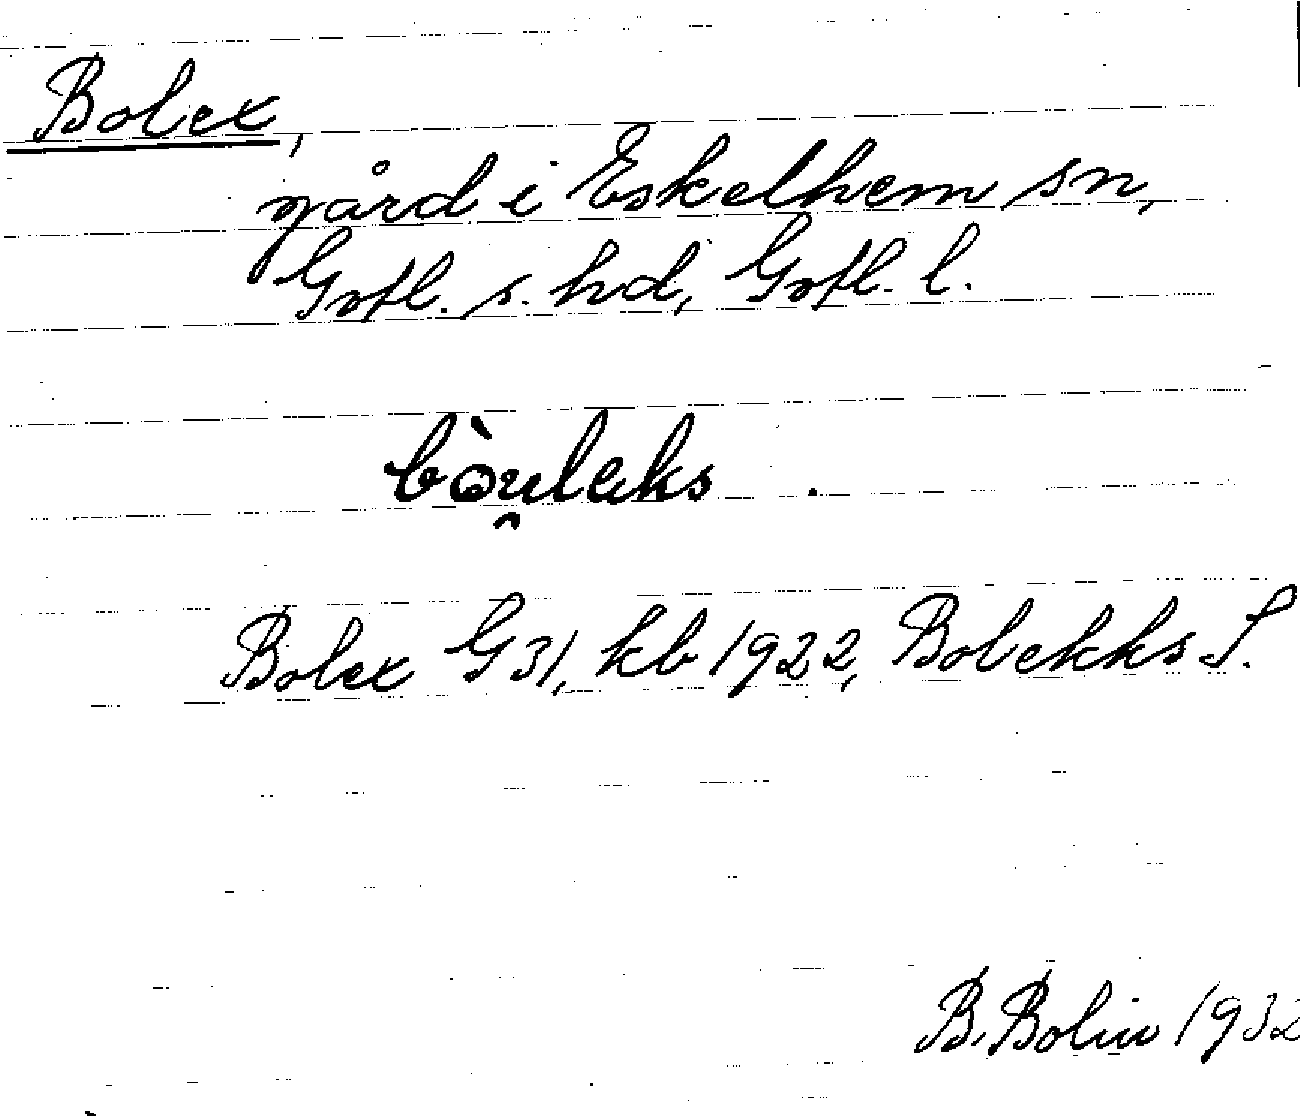 Bolex,
gård i Eskelhem sn,
Gotl. s. hd, Gotl. l.
bòu̯leks .
Bolex G31, kb 1922, Bolekks S.
B. Bolin 1932